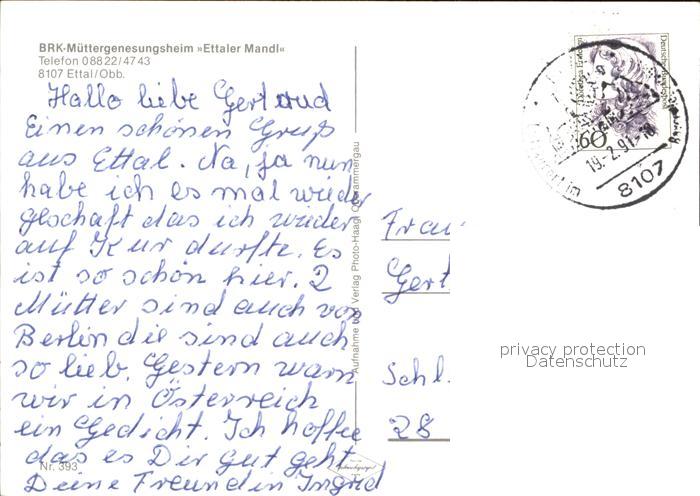 BRK-Müttergenesungsheim »Ettaler Mandl«
Telefon 0 88 22/47 43
8107 Ettal/Obb.
Hallo liebe Gertrud
Einen schönen Gruß
aus Ettal. Na, ja nun
habe ich es mal wieder
geschaft das ich wieder
auf Kur durfte. Es
ist so schön hier. 2
Mütter sind auch von
Berlin die sind auch
so lieb. Gestern warn
wir in Österreich
ein Gedicht. Ich hoffe
das es Dir gut geht
Deine Freundin Ingrid
Nr. 393
Aufnahme und Verlag Photo-Haagl Oberammergau
Deutsche Bundespost
60
19.-2.91-18
8107
Frau
Gert
Schl.
28
privacy protection
Datenschutz